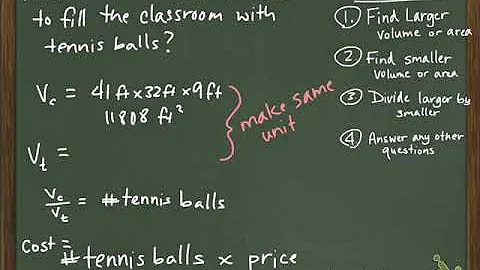 to fill the classroom with
tennis balls?
Vc = 41ft x 32ft x 9ft
11808 ft²
Vt =
} make same
unit
Vc/Vt = # tennis balls
Cost =
# tennis balls x price
① Find Larger
volume or area
② Find smaller
volume or area
③ Divide larger by
smaller
④ Answer any other
questions